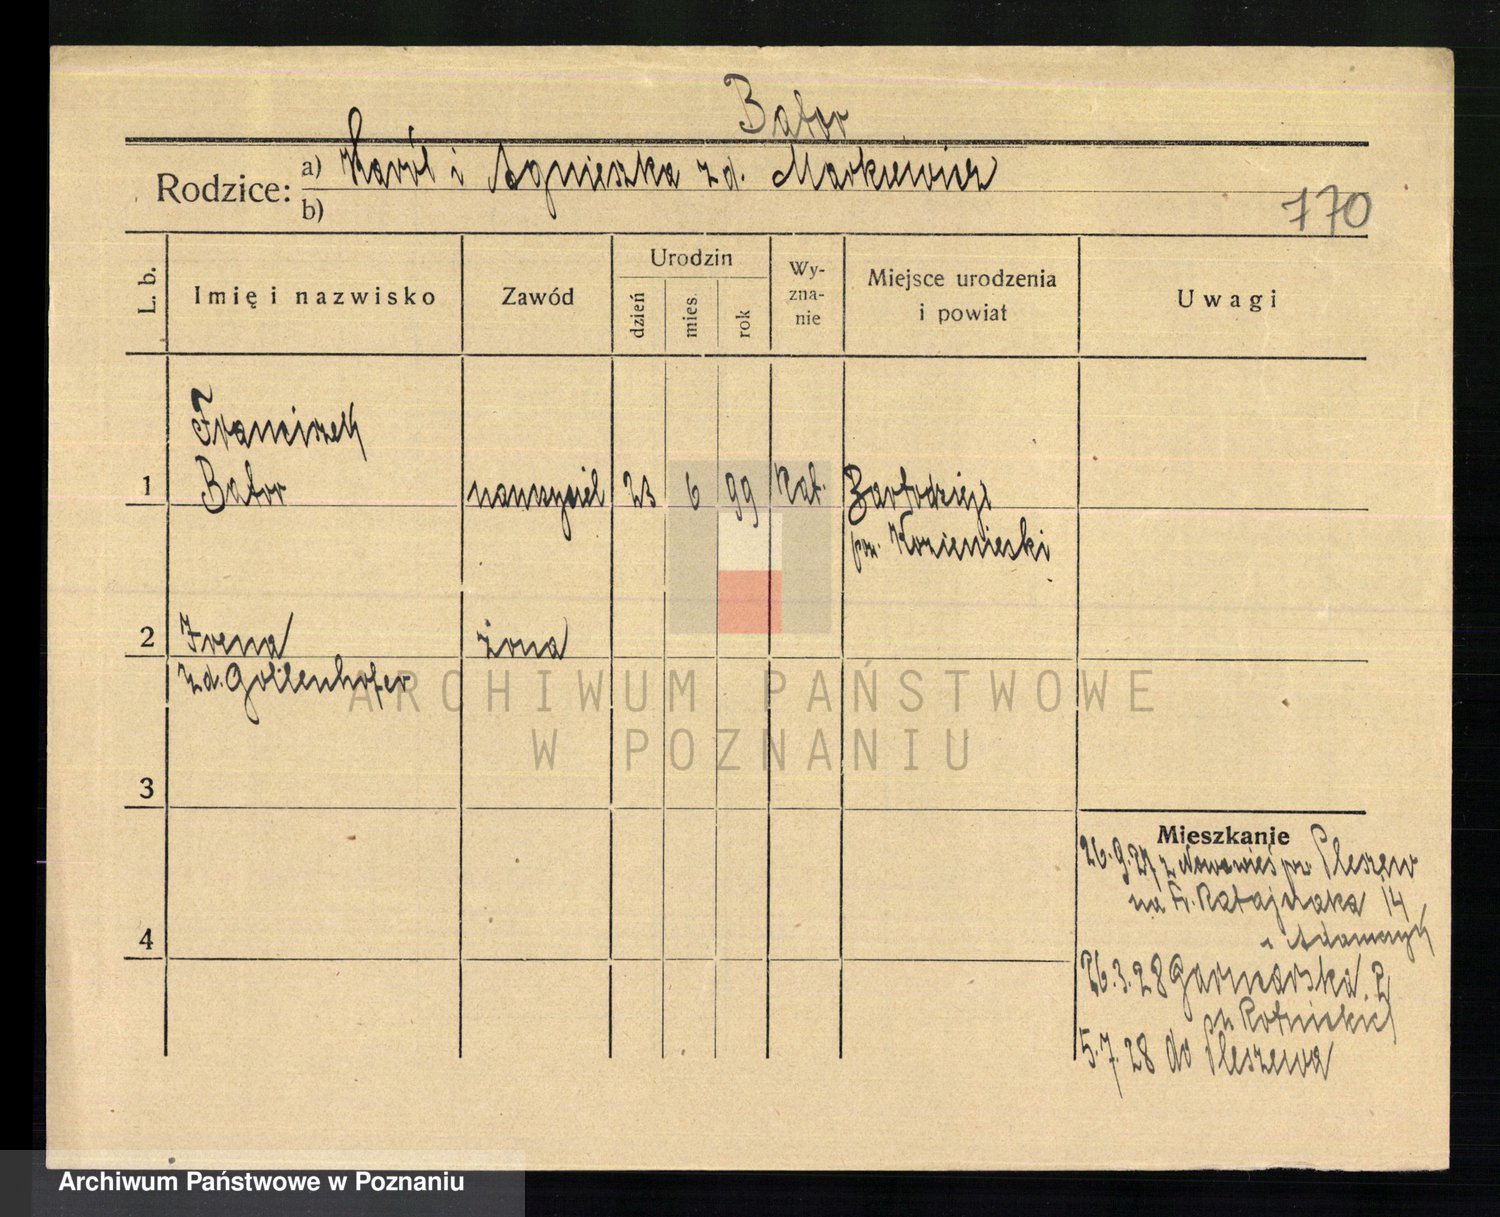 Bator
Rodzice: a) Karol i Agnieszka z d. Markiewicz
b)
170
L. b.
Imię i nazwisko
Zawód
Urodzin
dzień
mies.
rok
Wy-
zna-
nie
Miejsce urodzenia
i powiat
Uwagi
Franciszek
1 Bator nauczyciel 23 6 99 kat.
pow. Kozienicski
2 Irena żona
z d. Gollenhofer
3
4
Mieszkanie
26.9.27 z Nowawieś pw Pleszew
na Fr. Ratajczaka 14
u Adamczyk
26.3.28 Garncarska 2
u Rotnickich
5.7.28 do Pleszewa
ARCHIWUM PAŃSTWOWE
W POZNANIU
Archiwum Państwowe w Poznaniu